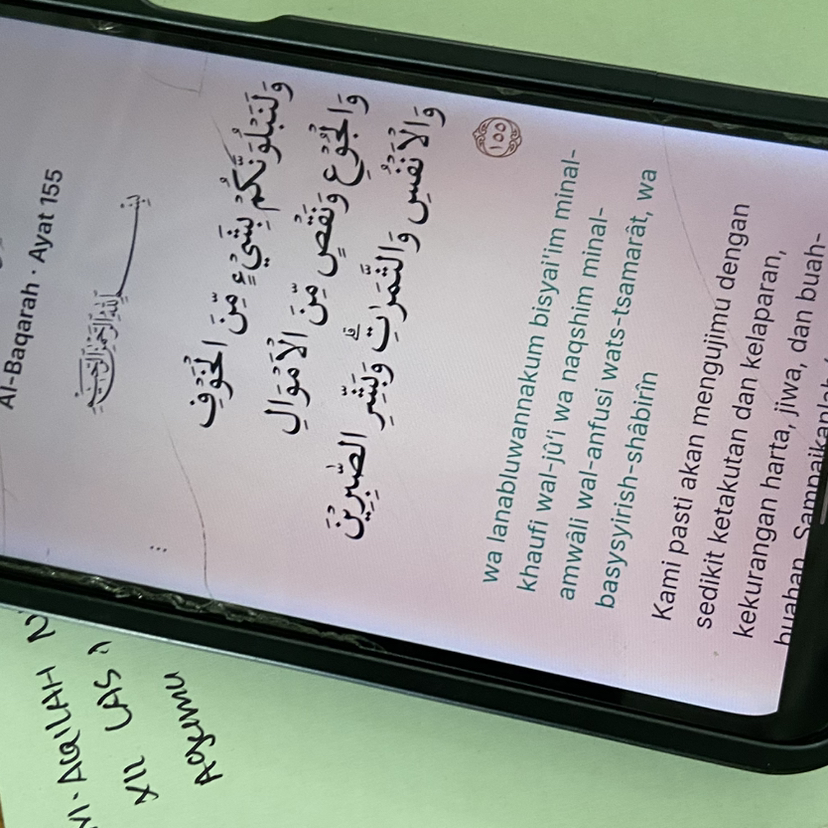 Al-Baqarah · Ayat 155
بِسْمِ اللّٰهِ الرَّحْمٰنِ الرَّحِيْمِ
وَلَنَبْلُوَنَّكُمْ بِشَيْءٍ مِّنَ الْخَوْفِ
وَالْجُوْعِ وَنَقْصٍ مِّنَ الْاَمْوَالِ
وَالْاَنْفُسِ وَالثَّمَرٰتِۗ وَبَشِّرِ الصّٰبِرِيْنَ
١٥٥
wa lanabluwannakum bisyai'im minal-
khaufi wal-jû‘i wa naqshim minal-
amwâli wal-anfusi wats-tsamarât, wa
basysyirish-shâbirîn
Kami pasti akan mengujimu dengan
sedikit ketakutan dan kelaparan,
kekurangan harta, jiwa, dan buah-
buahan. Sampaikanlah
XII